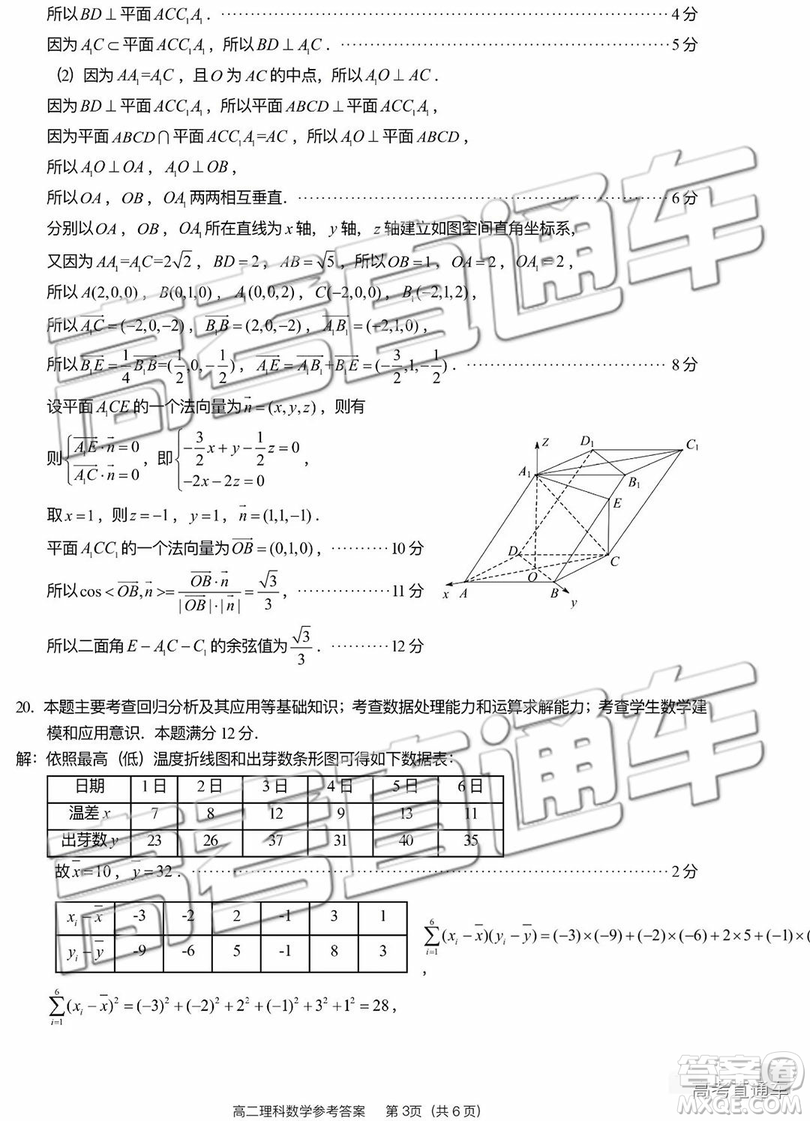 所以 BD ⊥ 平面 ACC₁A₁．……………4 分
因为 A₁C ⊂ 平面 ACC₁A₁，所以 BD ⊥ A₁C．……………5 分
（2）因为 AA₁=A₁C，且 O 为 AC 的中点，所以 A₁O ⊥ AC．
因为 BD ⊥ 平面 ACC₁A₁，所以平面 ABCD ⊥ 平面 ACC₁A₁，
因为平面 ABCD ∩ 平面 ACC₁A₁=AC，所以 A₁O ⊥ 平面 ABCD，
所以 A₁O ⊥ OA，A₁O ⊥ OB，
所以 OA，OB，OA₁ 两两相互垂直．……………6 分
分别以 OA，OB，OA₁ 所在直线为 x 轴，y 轴，z 轴建立如图空间直角坐标系，
又因为 AA₁=A₁C=2√2，BD=2，AB=√5，所以 OB=1，OA=2，OA₁=2，
所以 A(2,0,0)，B(0,1,0)，A₁(0,0,2)，C(−2,0,0)，B₁(−2,1,2)，
所以 A₁C→=(−2,0,−2)，B₁B→=(2,0,−2)，A₁B₁→=(−2,1,0)，
所以 B₁E→=1/4 B₁B→=(1/2,0,−1/2)，A₁E→=A₁B₁→+B₁E→=(−3/2,1,−1/2)．……………8 分
设平面 A₁CE 的一个法向量为 n→=(x,y,z)，则有
则{A₁E→·n→=0, A₁C→·n→=0，即{−3/2x+y−1/2z=0, −2x−2z=0，
取 x=1，则 z=−1，y=1，n→=(1,1,−1)．
平面 A₁CC₁ 的一个法向量为 OB→=(0,1,0)，…………10 分
所以 cos<OB→,n→>=OB→·n→/|OB→|·|n→|=√3/3，……………11 分
所以二面角 E−A₁C−C₁ 的余弦值为 √3/3．…………12 分
z
D₁
C₁
A₁
B₁
E
D
C
O
x
A
B
y
20．本题主要考查回归分析及其应用等基础知识；考查数据处理能力和运算求解能力；考查学生数学建
模和应用意识．本题满分 12 分．
解：依照最高（低）温度折线图和出芽数条形图可得如下数据表：
日期 1 日 2 日 3 日 4 日 5 日 6 日
温差 x 7 8 12 9 13 11
出芽数 y 23 26 37 31 40 35
故 x̄=10，ȳ=32．……………2 分
xᵢ−x̄ -3 -2 2 -1 3 1
yᵢ−ȳ -9 -6 5 -1 8 3
∑(i=1..6)(xᵢ−x̄)(yᵢ−ȳ)=(−3)×(−9)+(−2)×(−6)+2×5+(−1)×(
，
∑(i=1..6)(xᵢ−x̄)²=(−3)²+(−2)²+2²+(−1)²+3²+1²=28，
高二理科数学参考答案 第 3页（共 6 页）
高考直通车
高考直通车
答案圈
高考直通车
MXQE.COM